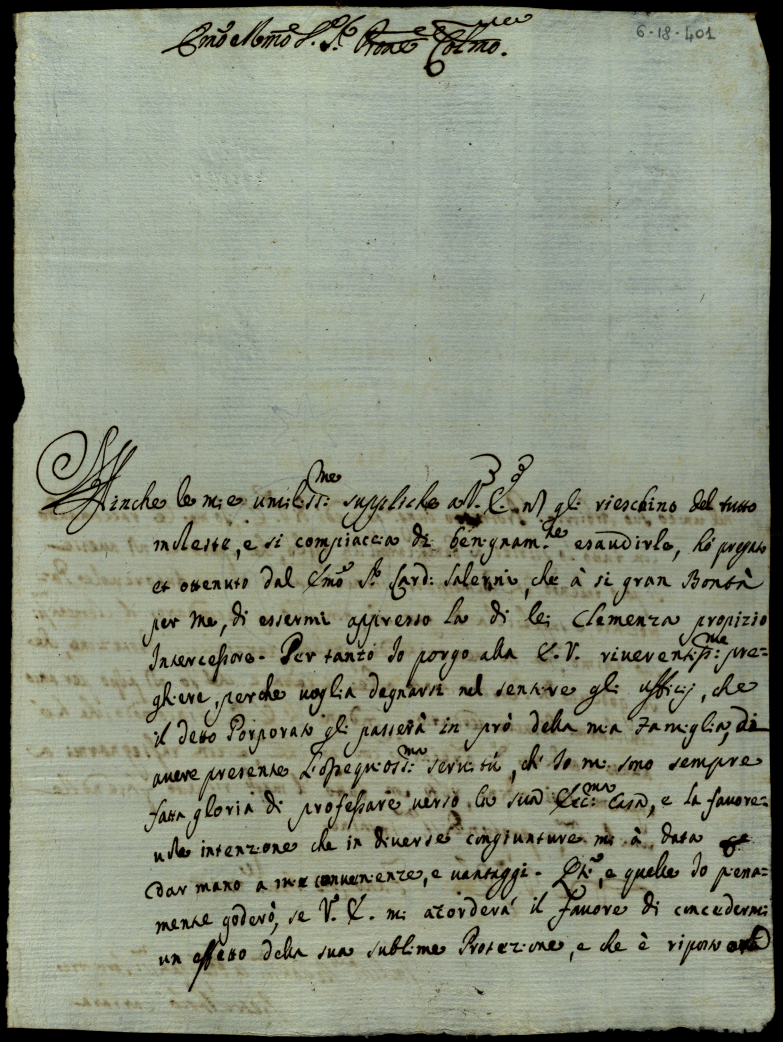 6-18-401
Emo e Rmo S.r S.r Prone Colmo.
Affinche le mie umiliss:me suppliche a V. E. nō gli rieschino del tutto
moleste, e si compiaccia di benignam.te esaudirle, hò pregato
et ottenuto dal Emo S.r Card: Salerni, che à si gran Bontà
per me, di essermi appresso la di lei Clemenza propizio
Intercessore. Per tanto Io porgo alla E. V. riverentiss:me pre=
ghiere, perche voglia degnarsi nel sentire gli ufficij, che
il detto Porporato gli passerà in prò della mia Famiglia, di
avere presente l'ossequiosiss:ma servitù, ch' Io mi sono sempre
fatta gloria di professare verso la sua Ecc:ma Casa, e la favore=
vole intenzione che in diverse congiunture mi à data
dar mano a mie convenienze, e vantaggi. e quelle Io piena=
mente goderò, se V. E. mi accorderà il favore di concedermi
un effetto della sua sublime Protezione, e che è riposto